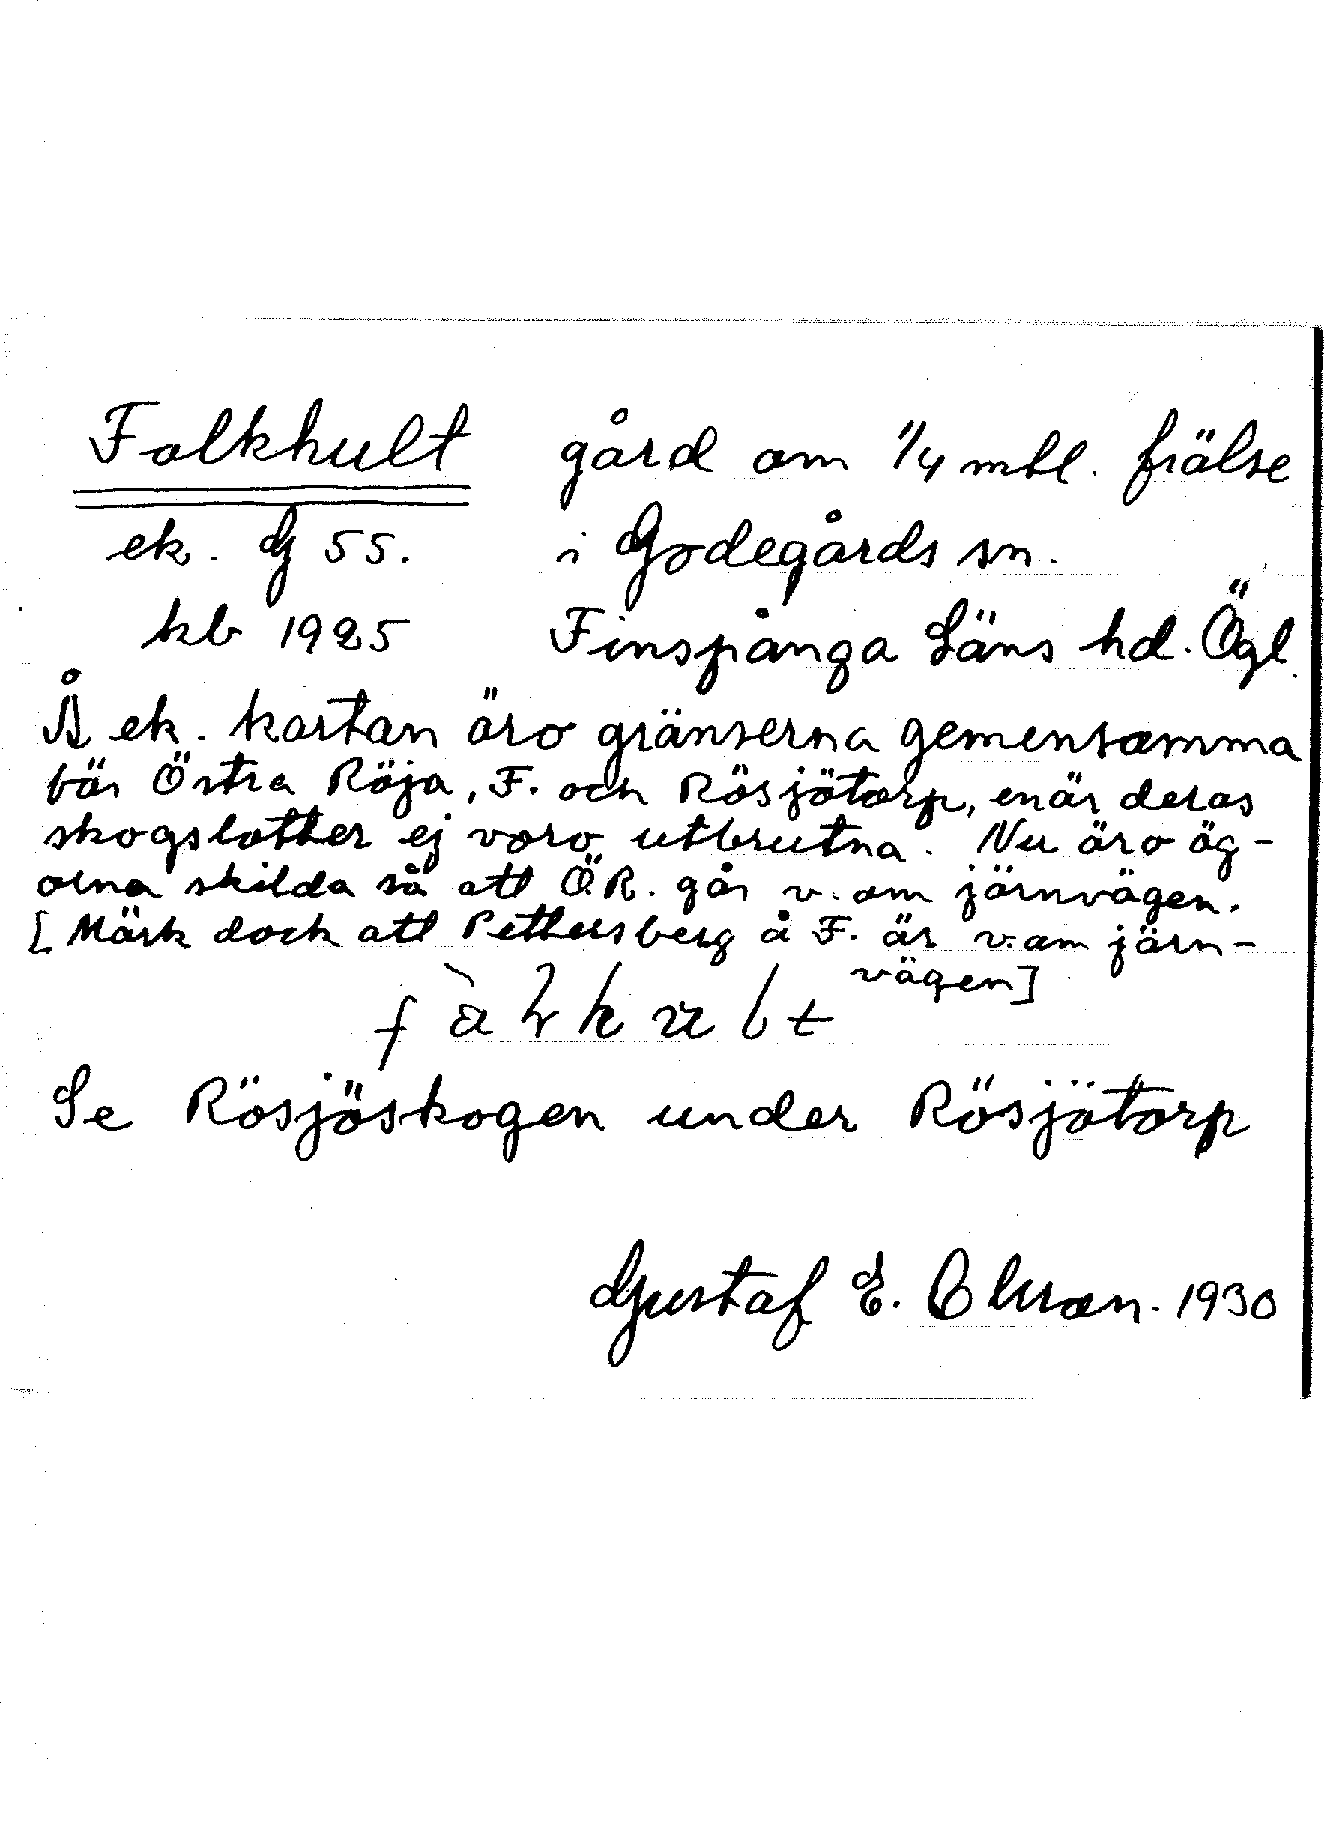 Folkhult gård om 1/4 mtl. frälse
ek. G 55. i Godegårds sn.
kb 1925 Finspånga Läns hd. Ögl.
Å ek. kartan äro gränserna gemensamma
för Östra Röja, F. och Rösjötorp, enär deras
skogslotter ej voro utbrutna. Nu äro äg-
orna skilda så att Ö.R. går v. om järnvägen.
[Märk dock att Pettersberg å F. är v. om järn-
vägen]
Se Rösjöskogen under Rösjötorp
Gustaf E. 1930